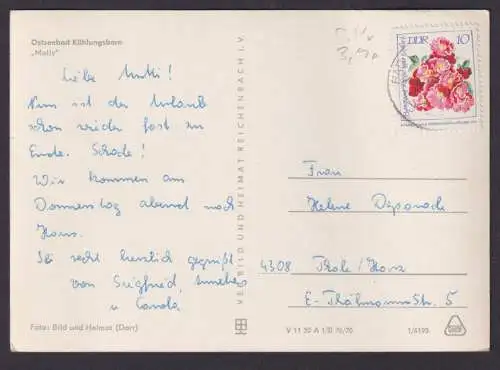 Ostseebad Kühlungsborn
„Molli“
Liebe Mutti!
Nun ist der Urlaub
schon wieder fast zu
Ende. Schade!
Wir kommen am
Donnerstag abend nach
Haus.
Sei recht herzlich gegrüßt
von Siegfried, Annelies
u. Carola
Foto: Bild und Heimat (Darr)
VEB BILD UND HEIMAT REICHENBACH I. V.
V 11 50 A 1/B 76/70
1/4195
DDR 10
Frau
Helene
4308 Thale/Harz
E-Thälmann Str. 5